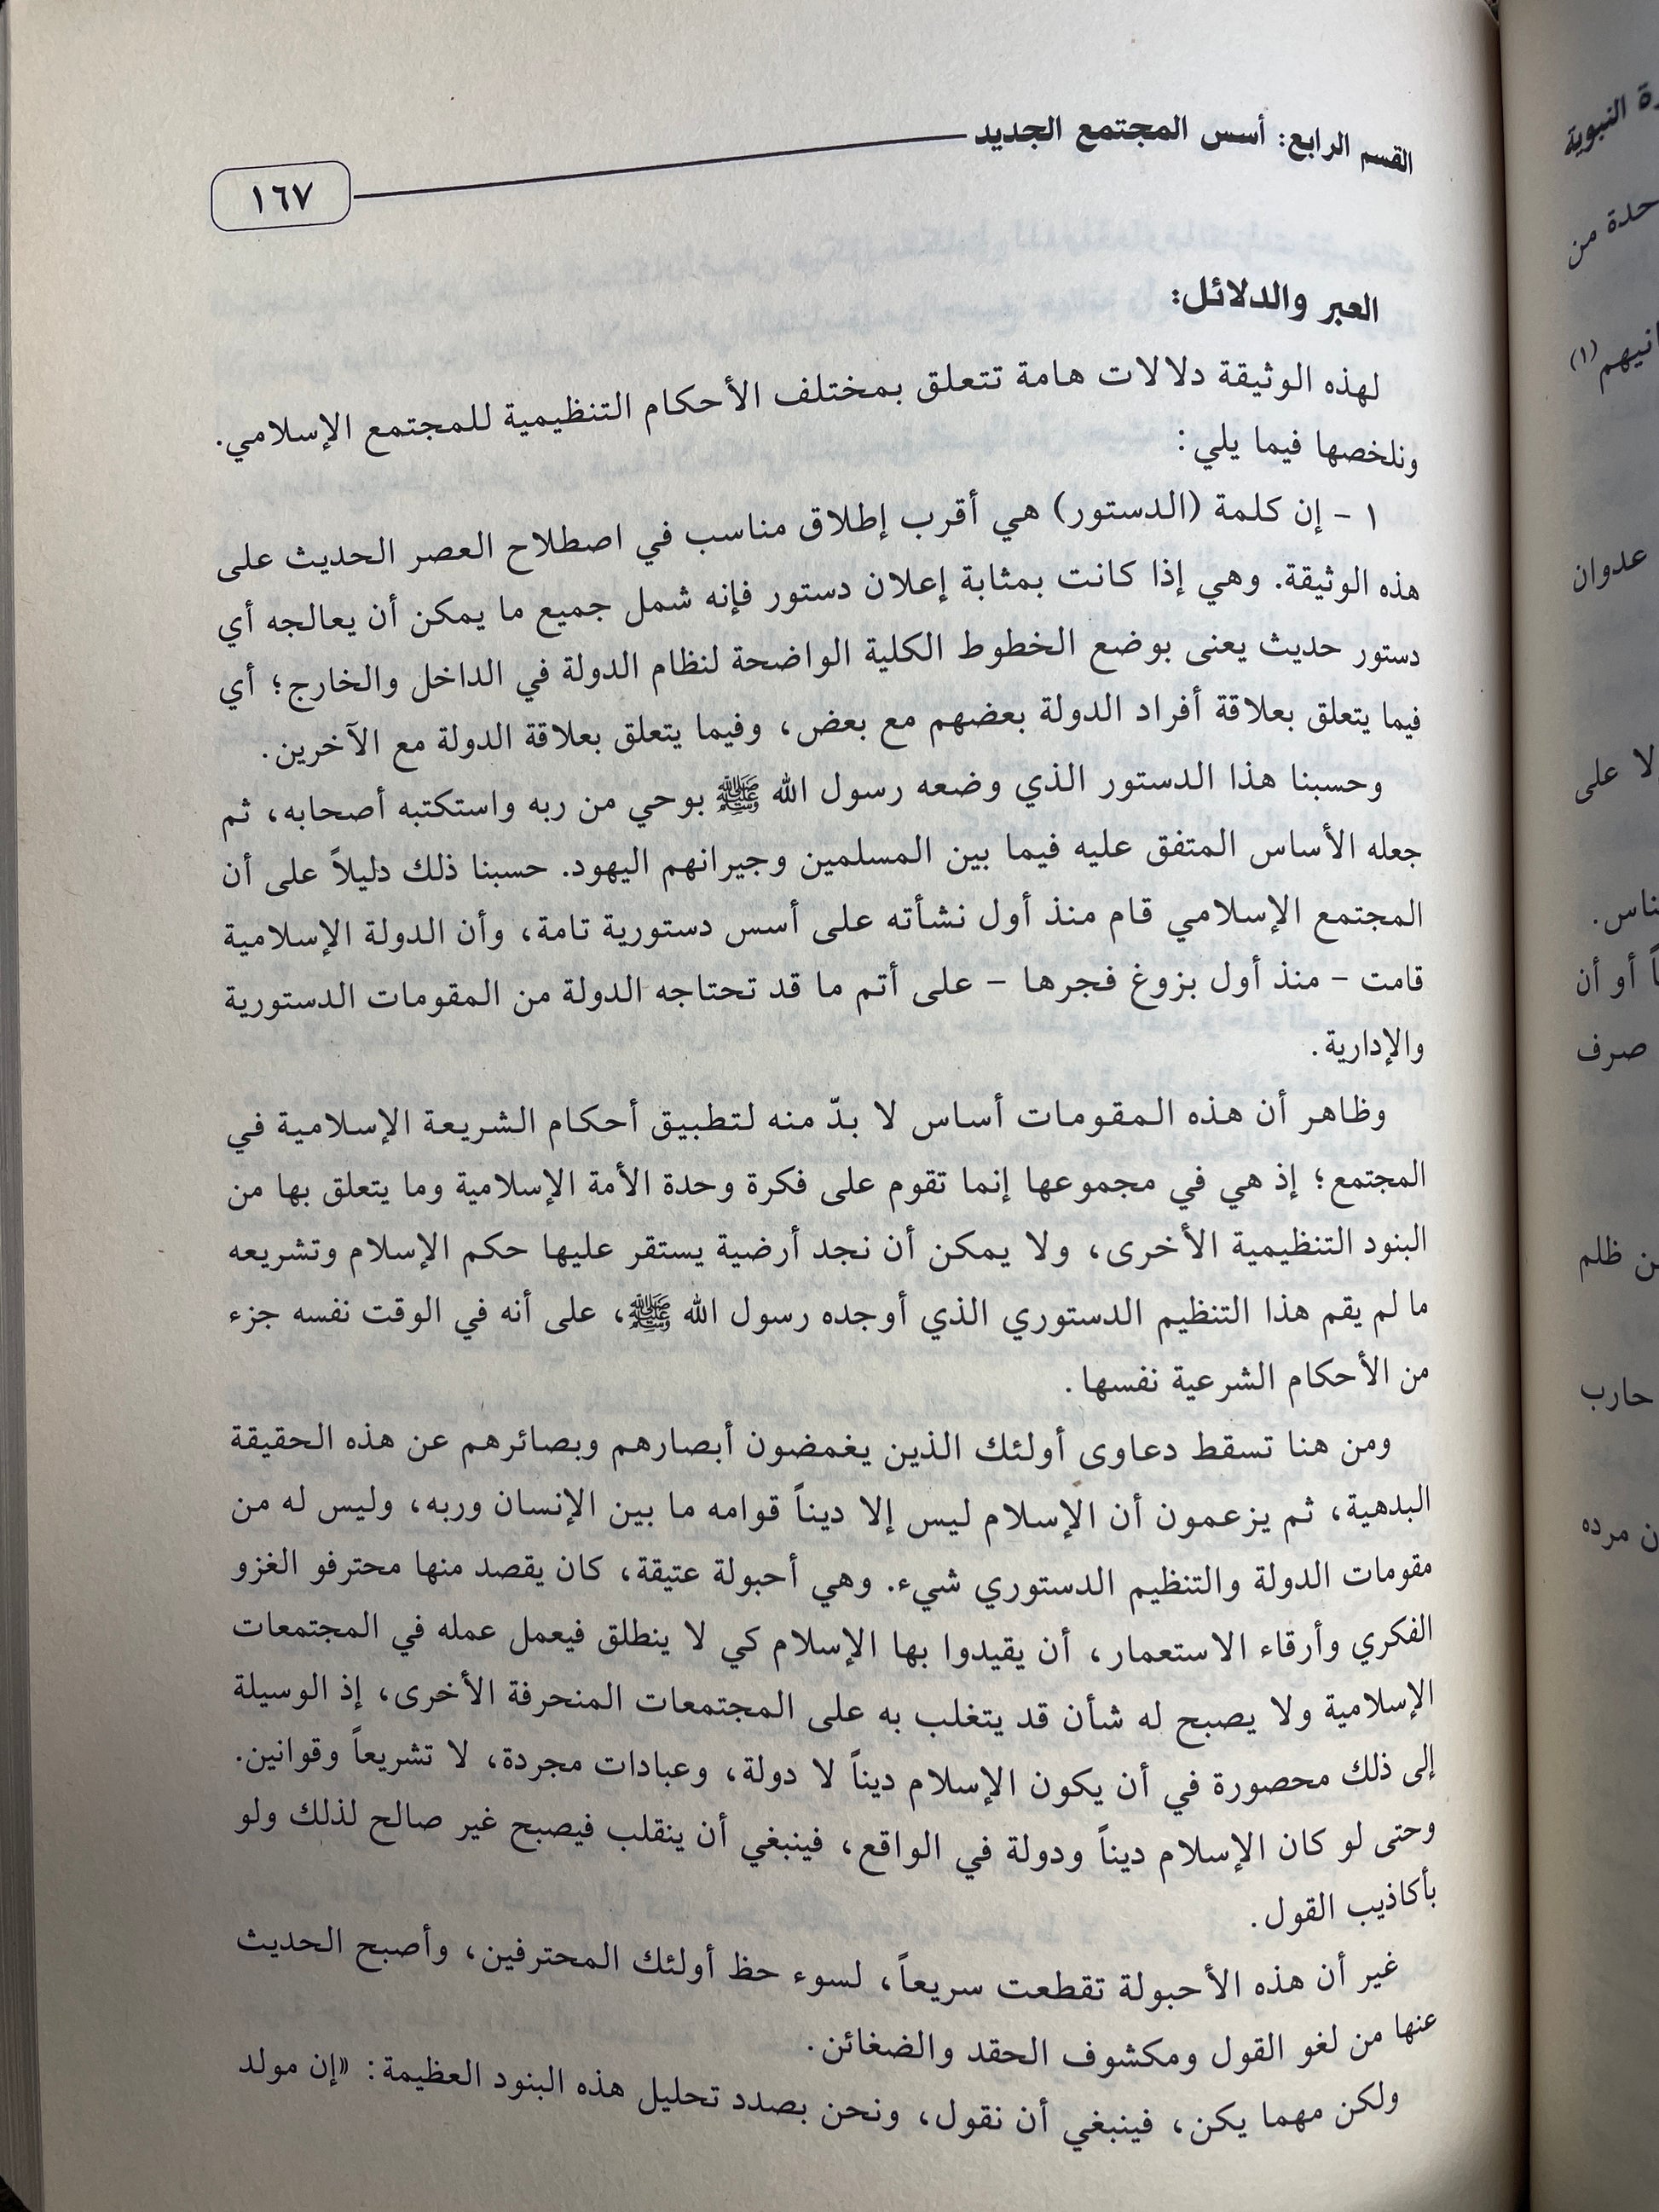 القسم الرابع: أسس المجتمع الجديد
١٦٧
العبر والدلائل:
لهذه الوثيقة دلالات هامة تتعلق بمختلف الأحكام التنظيمية للمجتمع الإسلامي.
ونلخصها فيما يلي:
١ - إن كلمة (الدستور) هي أقرب إطلاق مناسب في اصطلاح العصر الحديث على
هذه الوثيقة. وهي إذا كانت بمثابة إعلان دستور فإنه شمل جميع ما يمكن أن يعالجه أي
دستور حديث يعنى بوضع الخطوط الكلية الواضحة لنظام الدولة في الداخل والخارج؛ أي
فيما يتعلق بعلاقة أفراد الدولة بعضهم مع بعض، وفيما يتعلق بعلاقة الدولة مع الآخرين.
وحسبنا هذا الدستور الذي وضعه رسول الله ﷺ بوحي من ربه واستكتبه أصحابه، ثم
جعله الأساس المتفق عليه فيما بين المسلمين وجيرانهم اليهود. حسبنا ذلك دليلاً على أن
المجتمع الإسلامي قام منذ أول نشأته على أسس دستورية تامة، وأن الدولة الإسلامية
قامت - منذ أول بزوغ فجرها - على أتم ما قد تحتاجه الدولة من المقومات الدستورية
والإدارية.
وظاهر أن هذه المقومات أساس لا بدّ منه لتطبيق أحكام الشريعة الإسلامية في
المجتمع؛ إذ هي في مجموعها إنما تقوم على فكرة وحدة الأمة الإسلامية وما يتعلق بها من
البنود التنظيمية الأخرى، ولا يمكن أن نجد أرضية يستقر عليها حكم الإسلام وتشريعه
ما لم يقم هذا التنظيم الدستوري الذي أوجده رسول الله ﷺ، على أنه في الوقت نفسه جزء
من الأحكام الشرعية نفسها.
ومن هنا تسقط دعاوى أولئك الذين يغمضون أبصارهم وبصائرهم عن هذه الحقيقة
البدهية، ثم يزعمون أن الإسلام ليس إلا ديناً قوامه ما بين الإنسان وربه، وليس له من
مقومات الدولة والتنظيم الدستوري شيء. وهي أحبولة عتيقة، كان يقصد منها محترفو الغزو
الفكري وأرقاء الاستعمار، أن يقيدوا بها الإسلام كي لا ينطلق فيعمل عمله في المجتمعات
الإسلامية ولا يصبح له شأن قد يتغلب به على المجتمعات المنحرفة الأخرى، إذ الوسيلة
إلى ذلك محصورة في أن يكون الإسلام ديناً لا دولة، وعبادات مجردة، لا تشريعاً وقوانين.
وحتى لو كان الإسلام ديناً ودولة في الواقع، فينبغي أن ينقلب فيصبح غير صالح لذلك ولو
بأكاذيب القول.
غير أن هذه الأحبولة تقطعت سريعاً، لسوء حظ أولئك المحترفين، وأصبح الحديث
عنها من لغو القول ومكشوف الحقد والضغائن.
ولكن مهما يكن، فينبغي أن نقول، ونحن بصدد تحليل هذه البنود العظيمة: «إن مولد
النبوية
من
(١)
عدوان
لا على
أو أن
صرف
ظلم
حارب
مرده